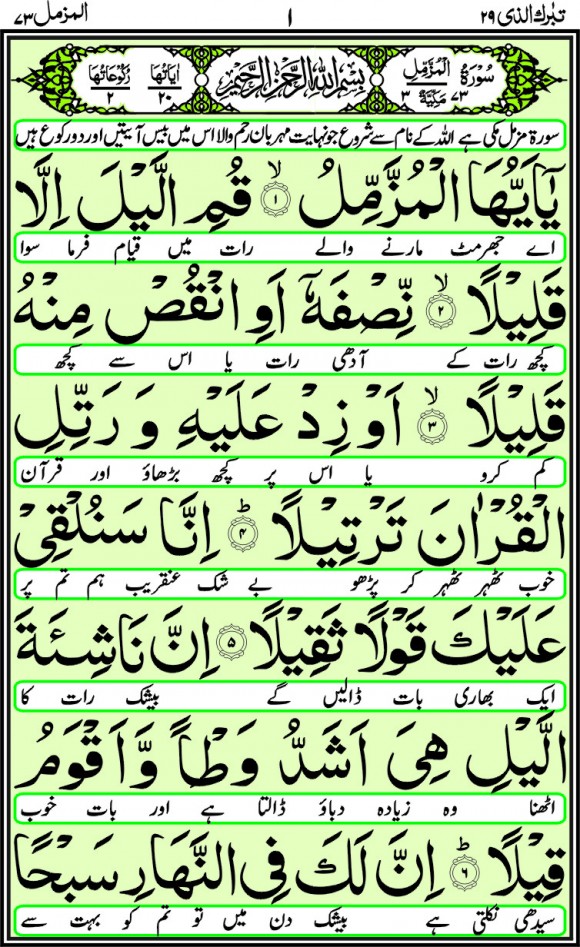 تبٰرك الذی ٢٩ ١ المزمل ٧٣
سُوْرَةُ الْمُزَّمِّلِ مَكِّيَّةٌ ٧٣ ٣ بِسْمِ اللّٰهِ الرَّحْمٰنِ الرَّحِيْمِ اٰيَاتُهَا ٢٠ رُكُوْعَاتُهَا ٢
سورۃ مزمل مکی ہے اللہ کے نام سے شروع جو نہایت مہربان رحم والا اس میں بیس آیتیں اور دو رکوع ہیں
يٰۤاَيُّهَا الْمُزَّمِّلُ ۙ‏ ﴿١﴾ قُمِ الَّيْلَ اِلَّا
اے جھرمٹ مارنے والے رات میں قیام فرما سوا
قَلِيْلًا ۙ‏ ﴿٢﴾ نِّصْفَهٗۤ اَوِ انْقُصْ مِنْهُ
کچھ رات کے آدھی رات یا اس سے کچھ
قَلِيْلًا ۙ‏ ﴿٣﴾ اَوْ زِدْ عَلَيْهِ وَ رَتِّلِ
کم کرو یا اس پر کچھ بڑھاؤ اور قرآن
الْقُرْاٰنَ تَرْتِيْلًا ؕ‏ ﴿٤﴾ اِنَّا سَنُلْقِىْ
خوب ٹھہر ٹھہر کر پڑھو بے شک عنقریب ہم تم پر
عَلَيْكَ قَوْلًا ثَقِيْلًا ﴿٥﴾ اِنَّ نَاشِئَةَ
ایک بھاری بات ڈالیں گے بیشک رات کا
الَّيْلِ هِىَ اَشَدُّ وَطْاً وَّ اَقْوَمُ
اٹھنا وہ زیادہ دباؤ ڈالتا ہے اور بات خوب
قِيْلًا ؕ‏ ﴿٦﴾ اِنَّ لَكَ فِى النَّهَارِ سَبْحًا
سیدھی نکلتی ہے بیشک دن میں تو تم کو بہت سے